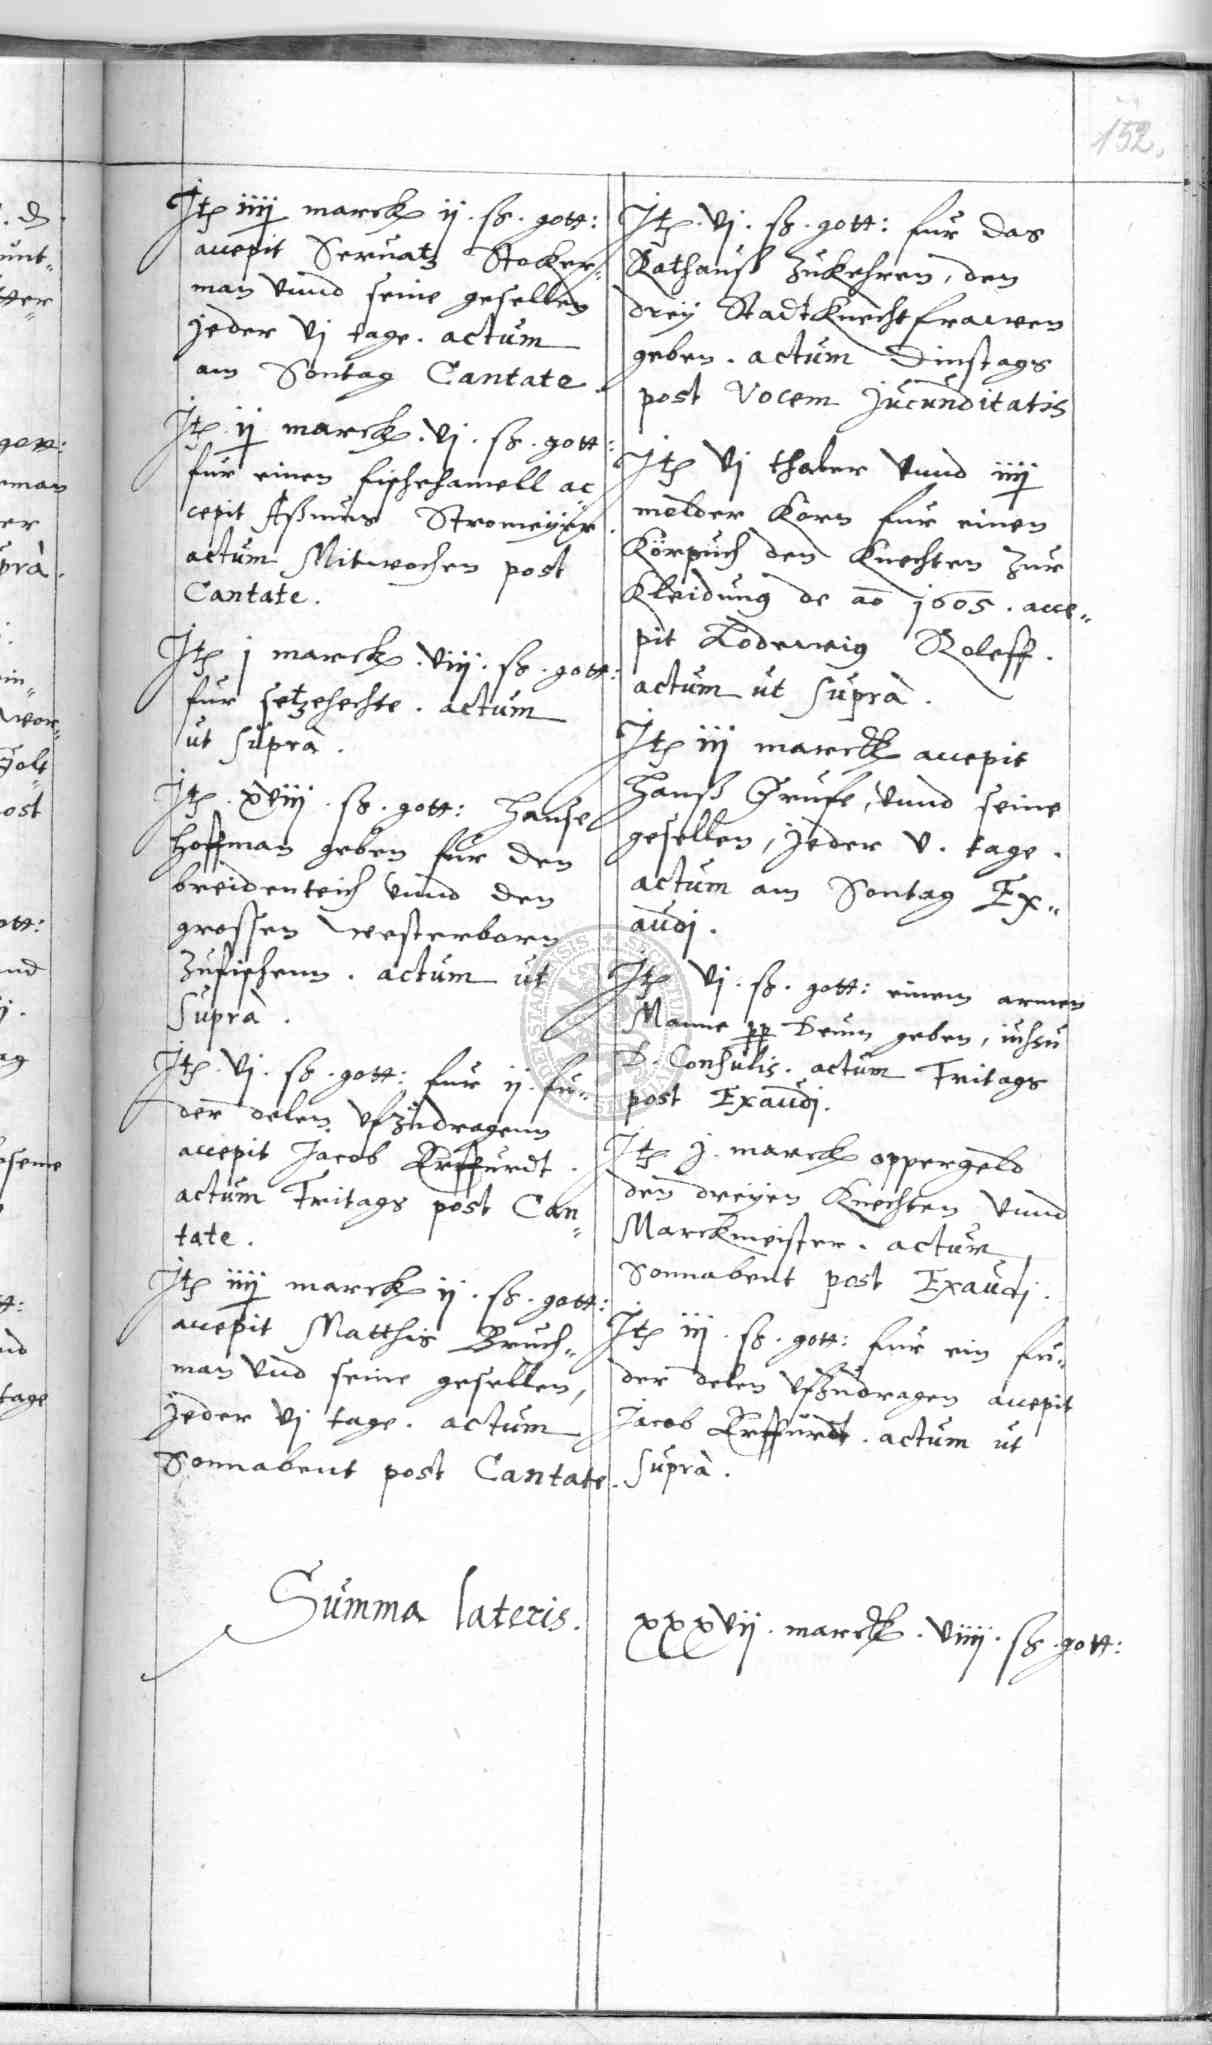 152.
Itẽ iiij marck ij. ß. gott:
accepit Servatz Stocker-
man vnnd seine gesellen
jeder vj tage. actum
am Sontag Cantate.
Itẽ ij marck. vj. ß. gott:
fur einen fischehamell ac
cepit Aßmus Stromeyer.
actum Mitwochen post
Cantate.
Itẽ j marck. viij. ß. gott:
fur setzehechte. actum
ut suprà.
Itẽ. xviij. ß. gott: Hanse
Hoffman geben fur den
breidenteich vnnd den
grossen westerborn
zufischenn. actum ut
suprà.
Itẽ. vj. ß. gott: fur ij. fu-
der delen vfzudragenn
accepit Jacob Erffurdt.
actum Fritags post Can-
tate.
Itẽ iiij marck ij. ß. gott:
accepit Matthis Bruch-
man vnd seine gesellen,
jeder vj tage. actum
Sonnabent post Cantate.
Itẽ. vj. ß. gott: fur das
Rathauß zukehren, den
drey Stadtknechtfrawen
geben. actum Dinstags
post Vocem jucunditatis
Itẽ vj thaler vnnd iiij
molder Korn fur einen
den Knechten zur
Kleidung de ao 1605. acce-
pit Lodewig Roleff.
actum ut suprà.
Itẽ iij marck accepit
Hanß Grufe, vnnd seine
gesellen, jeder v. tage.
actum am Sontag Ex-
audj.
Itẽ vj. ß. gott: einem armen
Manne pp Deum geben, iussu
D. Consulis. actum Fritags
post Exaudj.
Itẽ j. marck oppergeld
den dreyen Knechten vnnd
Marckmeister. actum
Sonnabent post Exaudj.
Itẽ iij. ß. gott: fur ein fu-
der delen vfzudragen accepit
Jacob Erffurdt. actum ut
suprà.
Summa lateris. xxxvij. marck. viiij. ß. gott: